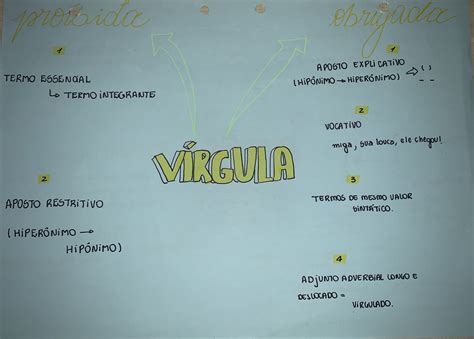 proibida
obrigada
VÍRGULA
1
TERMO ESSENCIAL
↳ TERMO INTEGRANTE
2
APOSTO RESTRITIVO
(HIPERÔNIMO →
HIPÔNIMO)
1
APOSTO EXPLICATIVO
(HIPÔNIMO → HIPERÔNIMO) ⇨ ( )
- -
2
VOCATIVO
miga, sua louca, ele chegou!
3
TERMOS DE MESMO VALOR
SINTÁTICO.
4
ADJUNTO ADVERBIAL LONGO E
DESLOCADO =
VIRGULADO.